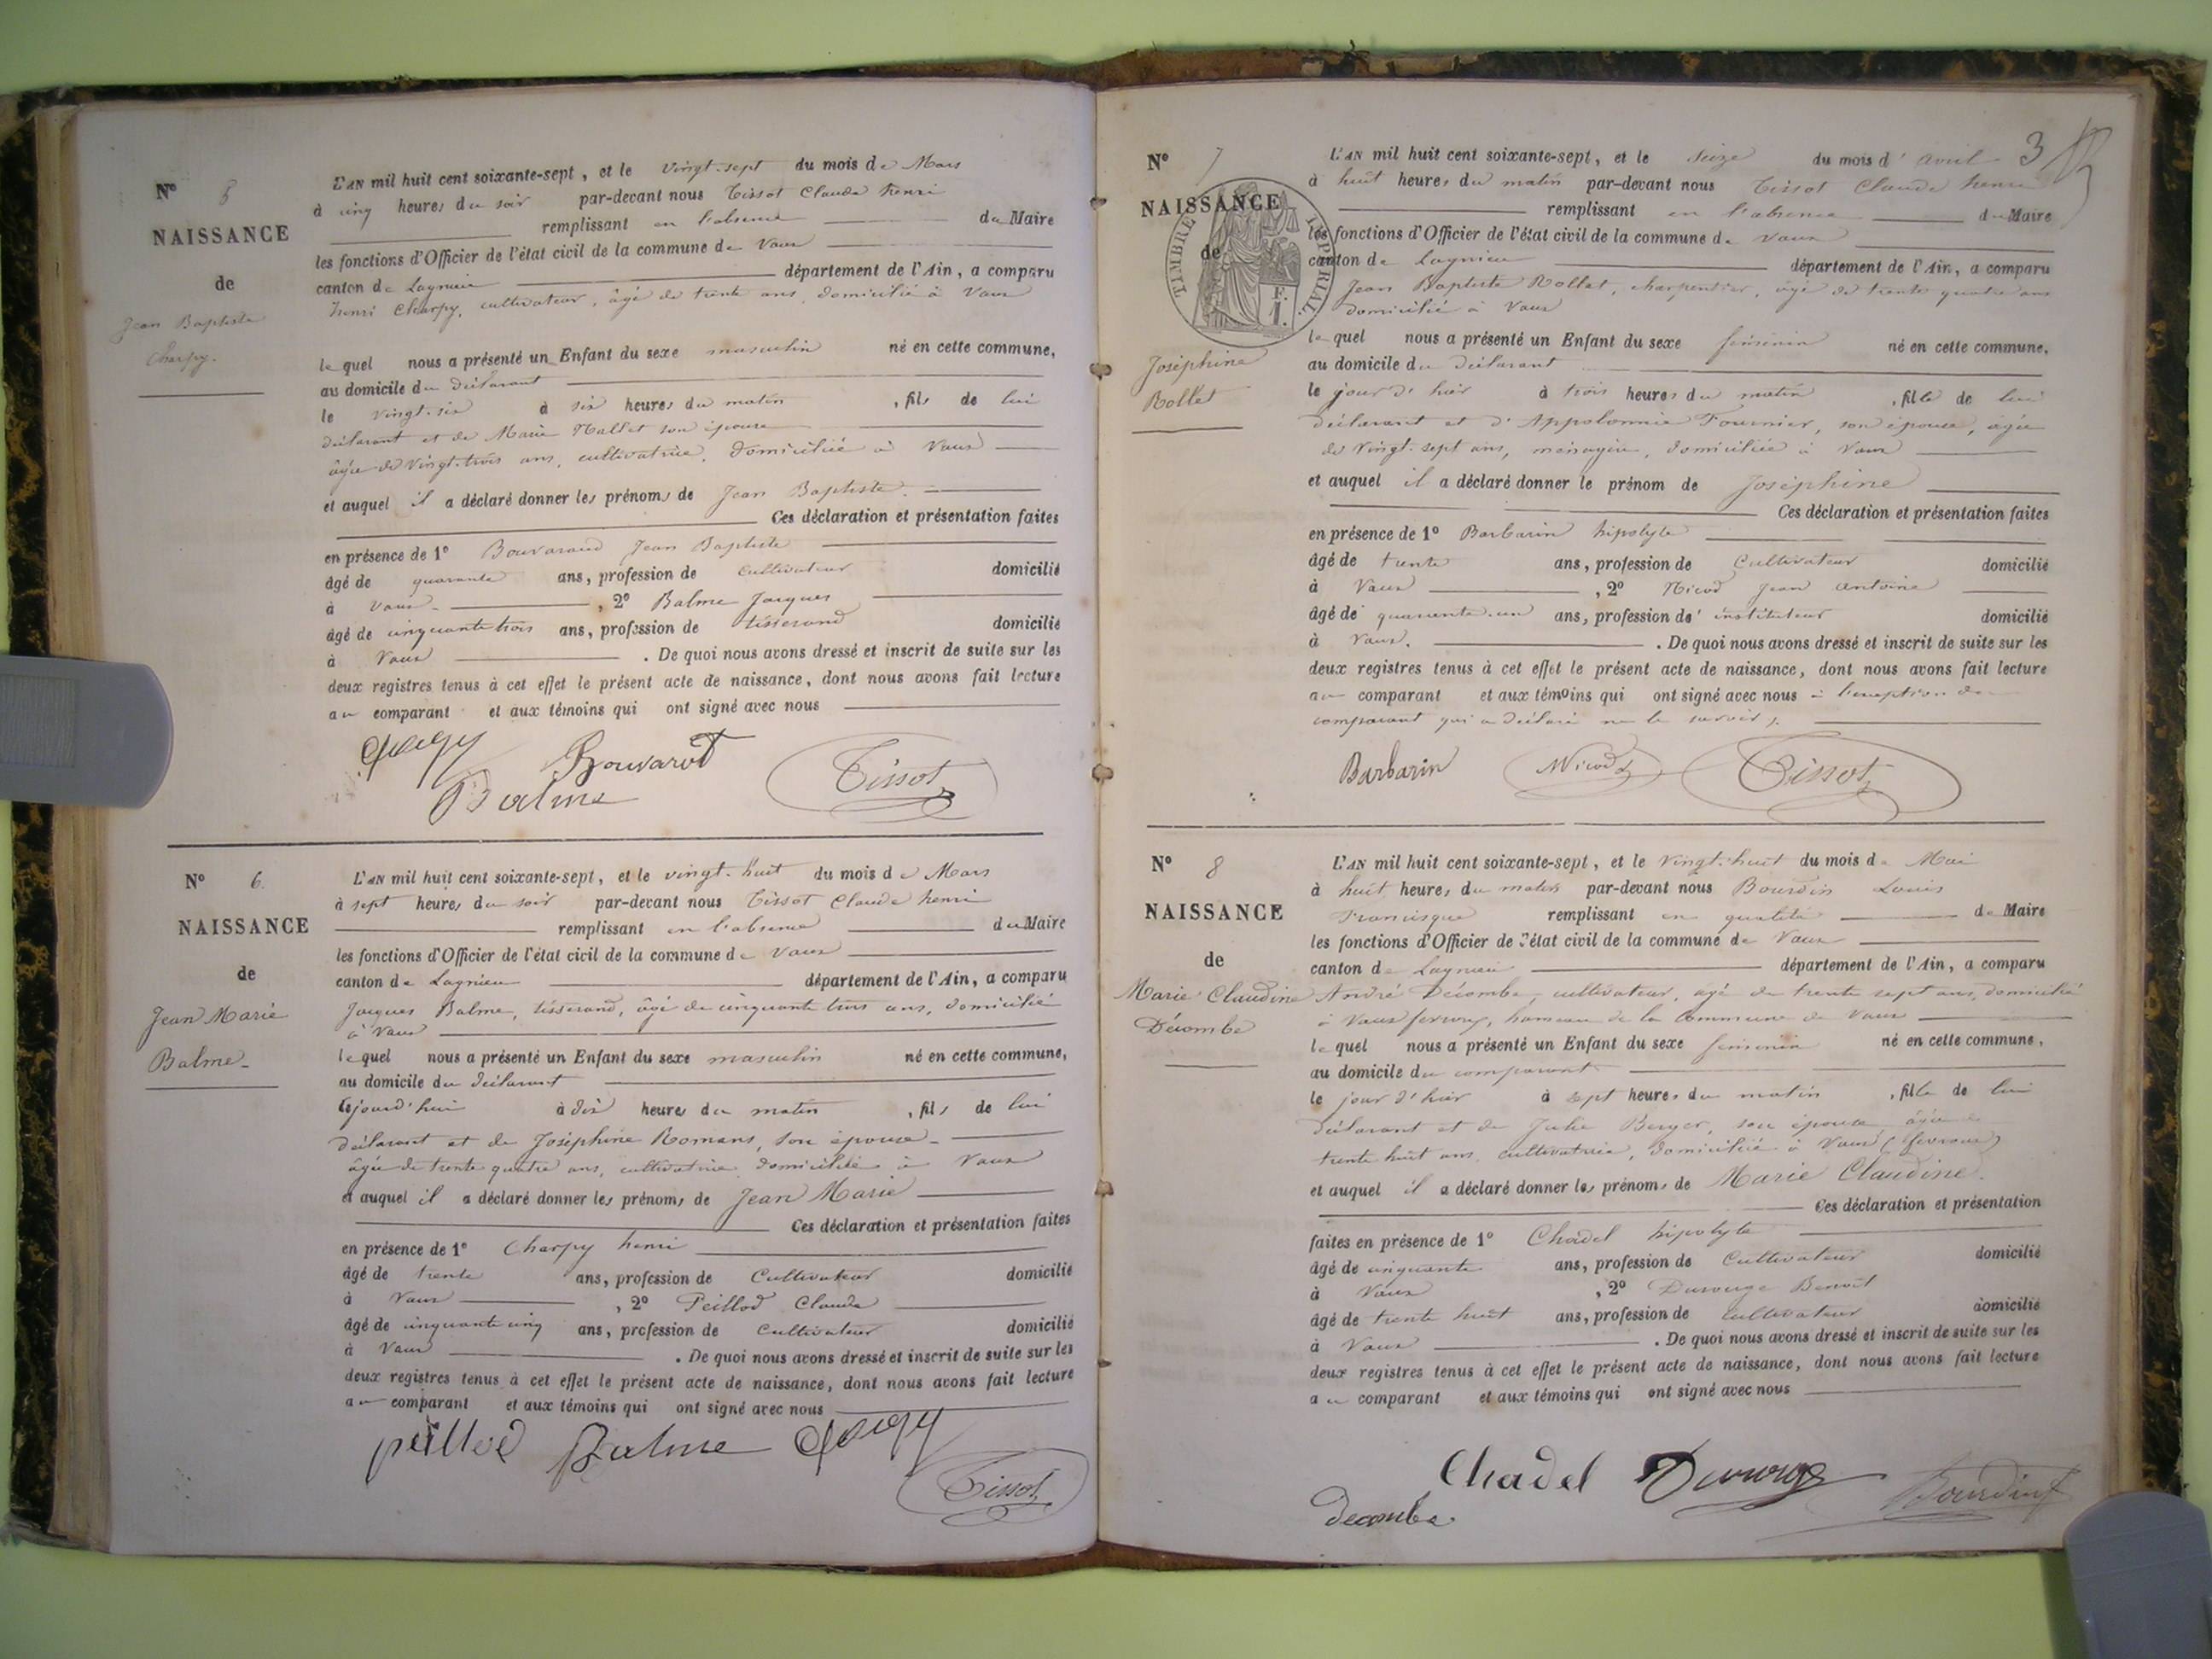 N° 5
NAISSANCE
de
Jean Baptiste
Charpy.
L'AN mil huit cent soixante-sept, et le vingt-sept du mois de Mars
à cinq heures du soir par-devant nous Tissot Claude henri
remplissant en l'absence du Maire
les fonctions d'Officier de l'état civil de la commune de Vaux
canton de Lagnieu département de l'Ain, a comparu
henri Charpy, cultivateur, âgé de trente ans, domicilié à Vaux
lequel nous a présenté un Enfant du sexe masculin né en cette commune,
au domicile du déclarant
le vingt-six à six heures du matin, fils de lui
déclarant et de Marie Mallet son épouse
âgée de vingt-trois ans, cultivatrice, domiciliée à Vaux
et auquel il a déclaré donner les prénoms de Jean Baptiste.
Ces déclaration et présentation faites
en présence de 1° Bouvarand Jean Baptiste
âgé de quarante ans, profession de Cultivateur domicilié
à Vaux, 2° Balme Jacques
âgé de cinquante trois ans, profession de tisserand domicilié
à Vaux. De quoi nous avons dressé et inscrit de suite sur les
deux registres tenus à cet effet le présent acte de naissance, dont nous avons fait lecture
au comparant et aux témoins qui ont signé avec nous
Bouvarot
Balme Tissot
N° 6.
NAISSANCE
de
Jean Marie
Balme
L'AN mil huit cent soixante-sept, et le vingt-huit du mois de Mars
à sept heures du soir par-devant nous Tissot Claude henri
remplissant en l'absence du Maire
les fonctions d'Officier de l'état civil de la commune de Vaux
canton de Lagnieu département de l'Ain, a comparu
Jacques Balme, tisserand, âgé de cinquante trois ans, domicilié
à Vaux
lequel nous a présenté un Enfant du sexe masculin né en cette commune,
au domicile du déclarant
cejourd'hui à dix heures du matin, fils de lui
déclarant et de Joséphine Romans, son épouse
âgée de trente quatre ans, cultivatrice domiciliée à Vaux
et auquel il a déclaré donner les prénoms de Jean Marie
Ces déclaration et présentation faites
en présence de 1° Charpy henri
âgé de trente ans, profession de Cultivateur domicilié
à Vaux, 2° Peillod Claude
âgé de cinquante cinq ans, profession de Cultivateur domicilié
à Vaux. De quoi nous avons dressé et inscrit de suite sur les
deux registres tenus à cet effet le présent acte de naissance, dont nous avons fait lecture
au comparant et aux témoins qui ont signé avec nous
peillod Balme
Tissot
3
N° 7
NAISSANCE
de
TIMBRE IMPÉRIAL
F.
1.
Joséphine
Rollet
L'AN mil huit cent soixante-sept, et le seize du mois d'avril
à huit heures du matin par-devant nous Tissot Claude henri
remplissant en l'absence du Maire
les fonctions d'Officier de l'état civil de la commune de Vaux
canton de Lagnieu département de l'Ain, a comparu
Jean Baptiste Rollet, charpentier, âgé de trente quatre ans
domicilié à Vaux
lequel nous a présenté un Enfant du sexe féminin né en cette commune,
au domicile du déclarant
le jour d'hier à trois heures du matin, fille de lui
déclarant et d'Appolonnie Fournier, son épouse, âgée
de vingt-sept ans, ménagère, domiciliée à Vaux
et auquel il a déclaré donner le prénom de Joséphine
Ces déclaration et présentation faites
en présence de 1° Barbarin hipolyte
âgé de trente ans, profession de Cultivateur domicilié
à Vaux, 2° Nicod Jean Antoine
âgé de quarente-un ans, profession d'instituteur domicilié
à Vaux. De quoi nous avons dressé et inscrit de suite sur les
deux registres tenus à cet effet le présent acte de naissance, dont nous avons fait lecture
au comparant et aux témoins qui ont signé avec nous à l'exception du
comparant qui a déclaré ne le savoir.
Barbarin Nicod Tissot
N° 8
NAISSANCE
de
Marie Claudine
Décombe
L'AN mil huit cent soixante-sept, et le vingt-huit du mois de Mai
à huit heures du matin par-devant nous Bourdin Louis
Francisque remplissant en qualité de Maire
les fonctions d'Officier de l'état civil de la commune de Vaux
canton de Lagnieu département de l'Ain, a comparu
André Décombe, cultivateur, âgé de trente sept ans, domicilié
à Vaux fevroux, hameau de la Commune de Vaux
lequel nous a présenté un Enfant du sexe féminin né en cette commune,
au domicile du comparant
le jour d'hier à sept heures du matin, fille de lui
déclarant et de Julie Berger, son épouse âgée de
trente huit ans, cultivatrice, domiciliée à Vaux (fevroux)
et auquel il a déclaré donner les prénoms de Marie Claudine.
Ces déclaration et présentation
faites en présence de 1° Chadel hipolyte
âgé de cinquante ans, profession de Cultivateur domicilié
à Vaux, 2° Durouge Benoît
âgé de trente huit ans, profession de Cultivateur domicilié
à Vaux. De quoi nous avons dressé et inscrit de suite sur les
deux registres tenus à cet effet le présent acte de naissance, dont nous avons fait lecture
au comparant et aux témoins qui ont signé avec nous
Chadel Durouge Bourdin
decombe